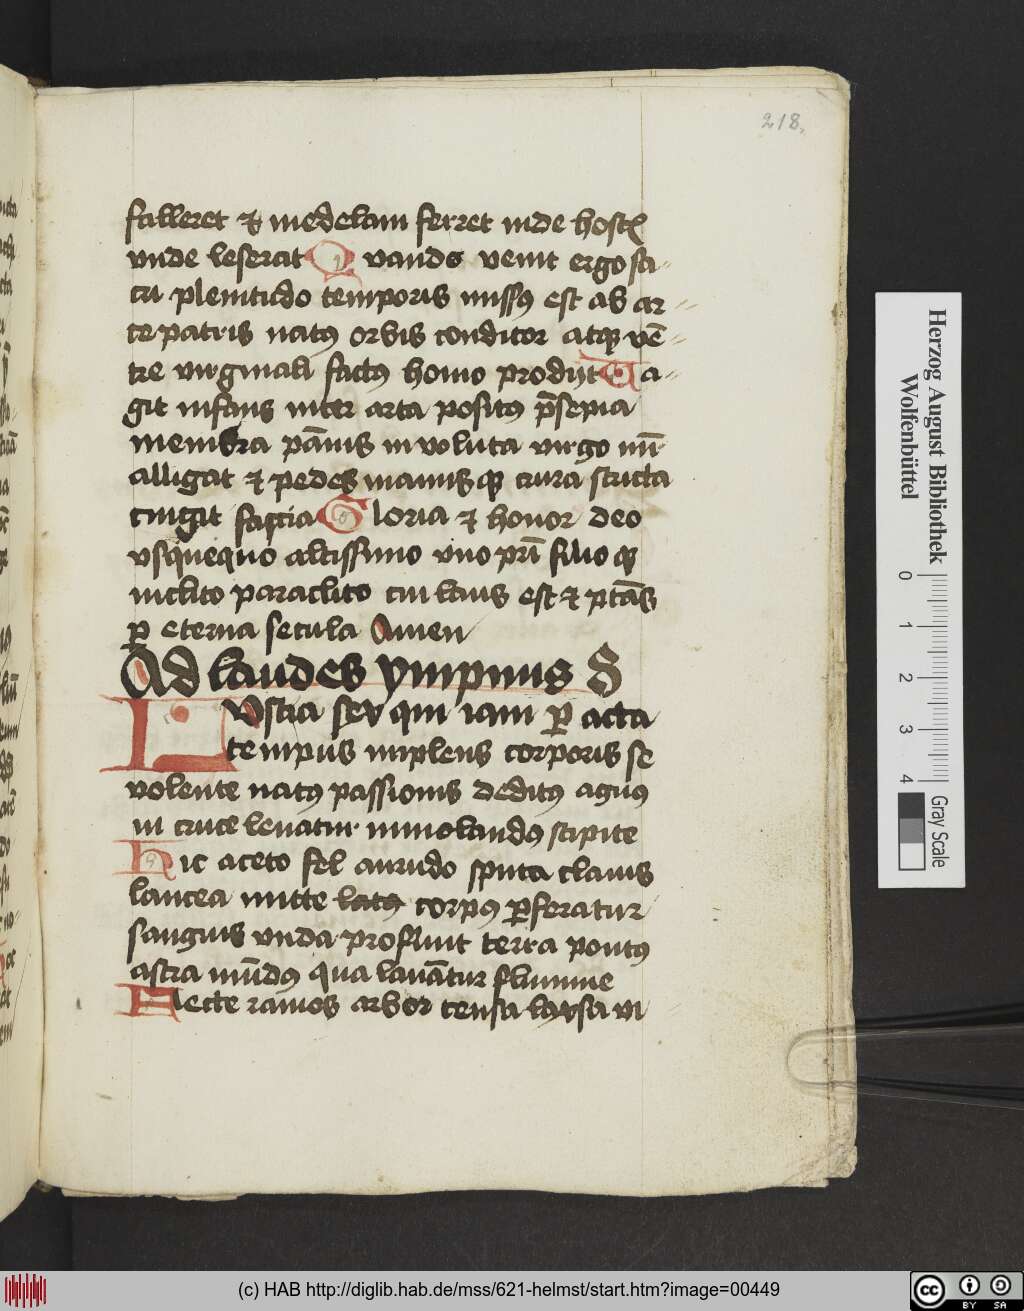 218.
falleret et medelam ferret inde hostꝭ
vnde leserat Quando venit ergo sa
cri plenitudo temporis missꝰ est ab ar
ce patris natꝰ orbis conditor atqꝫ vē
tre virginali factꝰ homo prodijt Ua
git infans inter arta positꝰ p̄sepia
membra pānis inuoluta virgo mr̄
alligat et pedes manusqꝫ crura stricta
cingit fascia Gloria et honor deo
vsquequo altissimo vno pri filioqꝫ
inclito paraclito cui laus est et ptās
ꝑ eterna secula Amen
Ad laudes ympnus S
Lustra sex qui iam ꝑacta
tempus implens corporis se
volente natꝰ passionis deditꝰ agnus
in cruce leuatur immolandꝰ stipite
Hic aceto fel arundo sputa clauis
lancea mitte latꝰ corpꝰ ꝑforatur
sanguis vnda profluit terra pontꝰ
astra mūdꝰ qua lauātur flumine
Flecte ramos arbor tensa laxsa vi
Herzog August Bibliothek
Wolfenbüttel
0 1 2 3 4
Gray Scale
(c) HAB http://diglib.hab.de/mss/621-helmst/start.htm?image=00449
cc BY SA